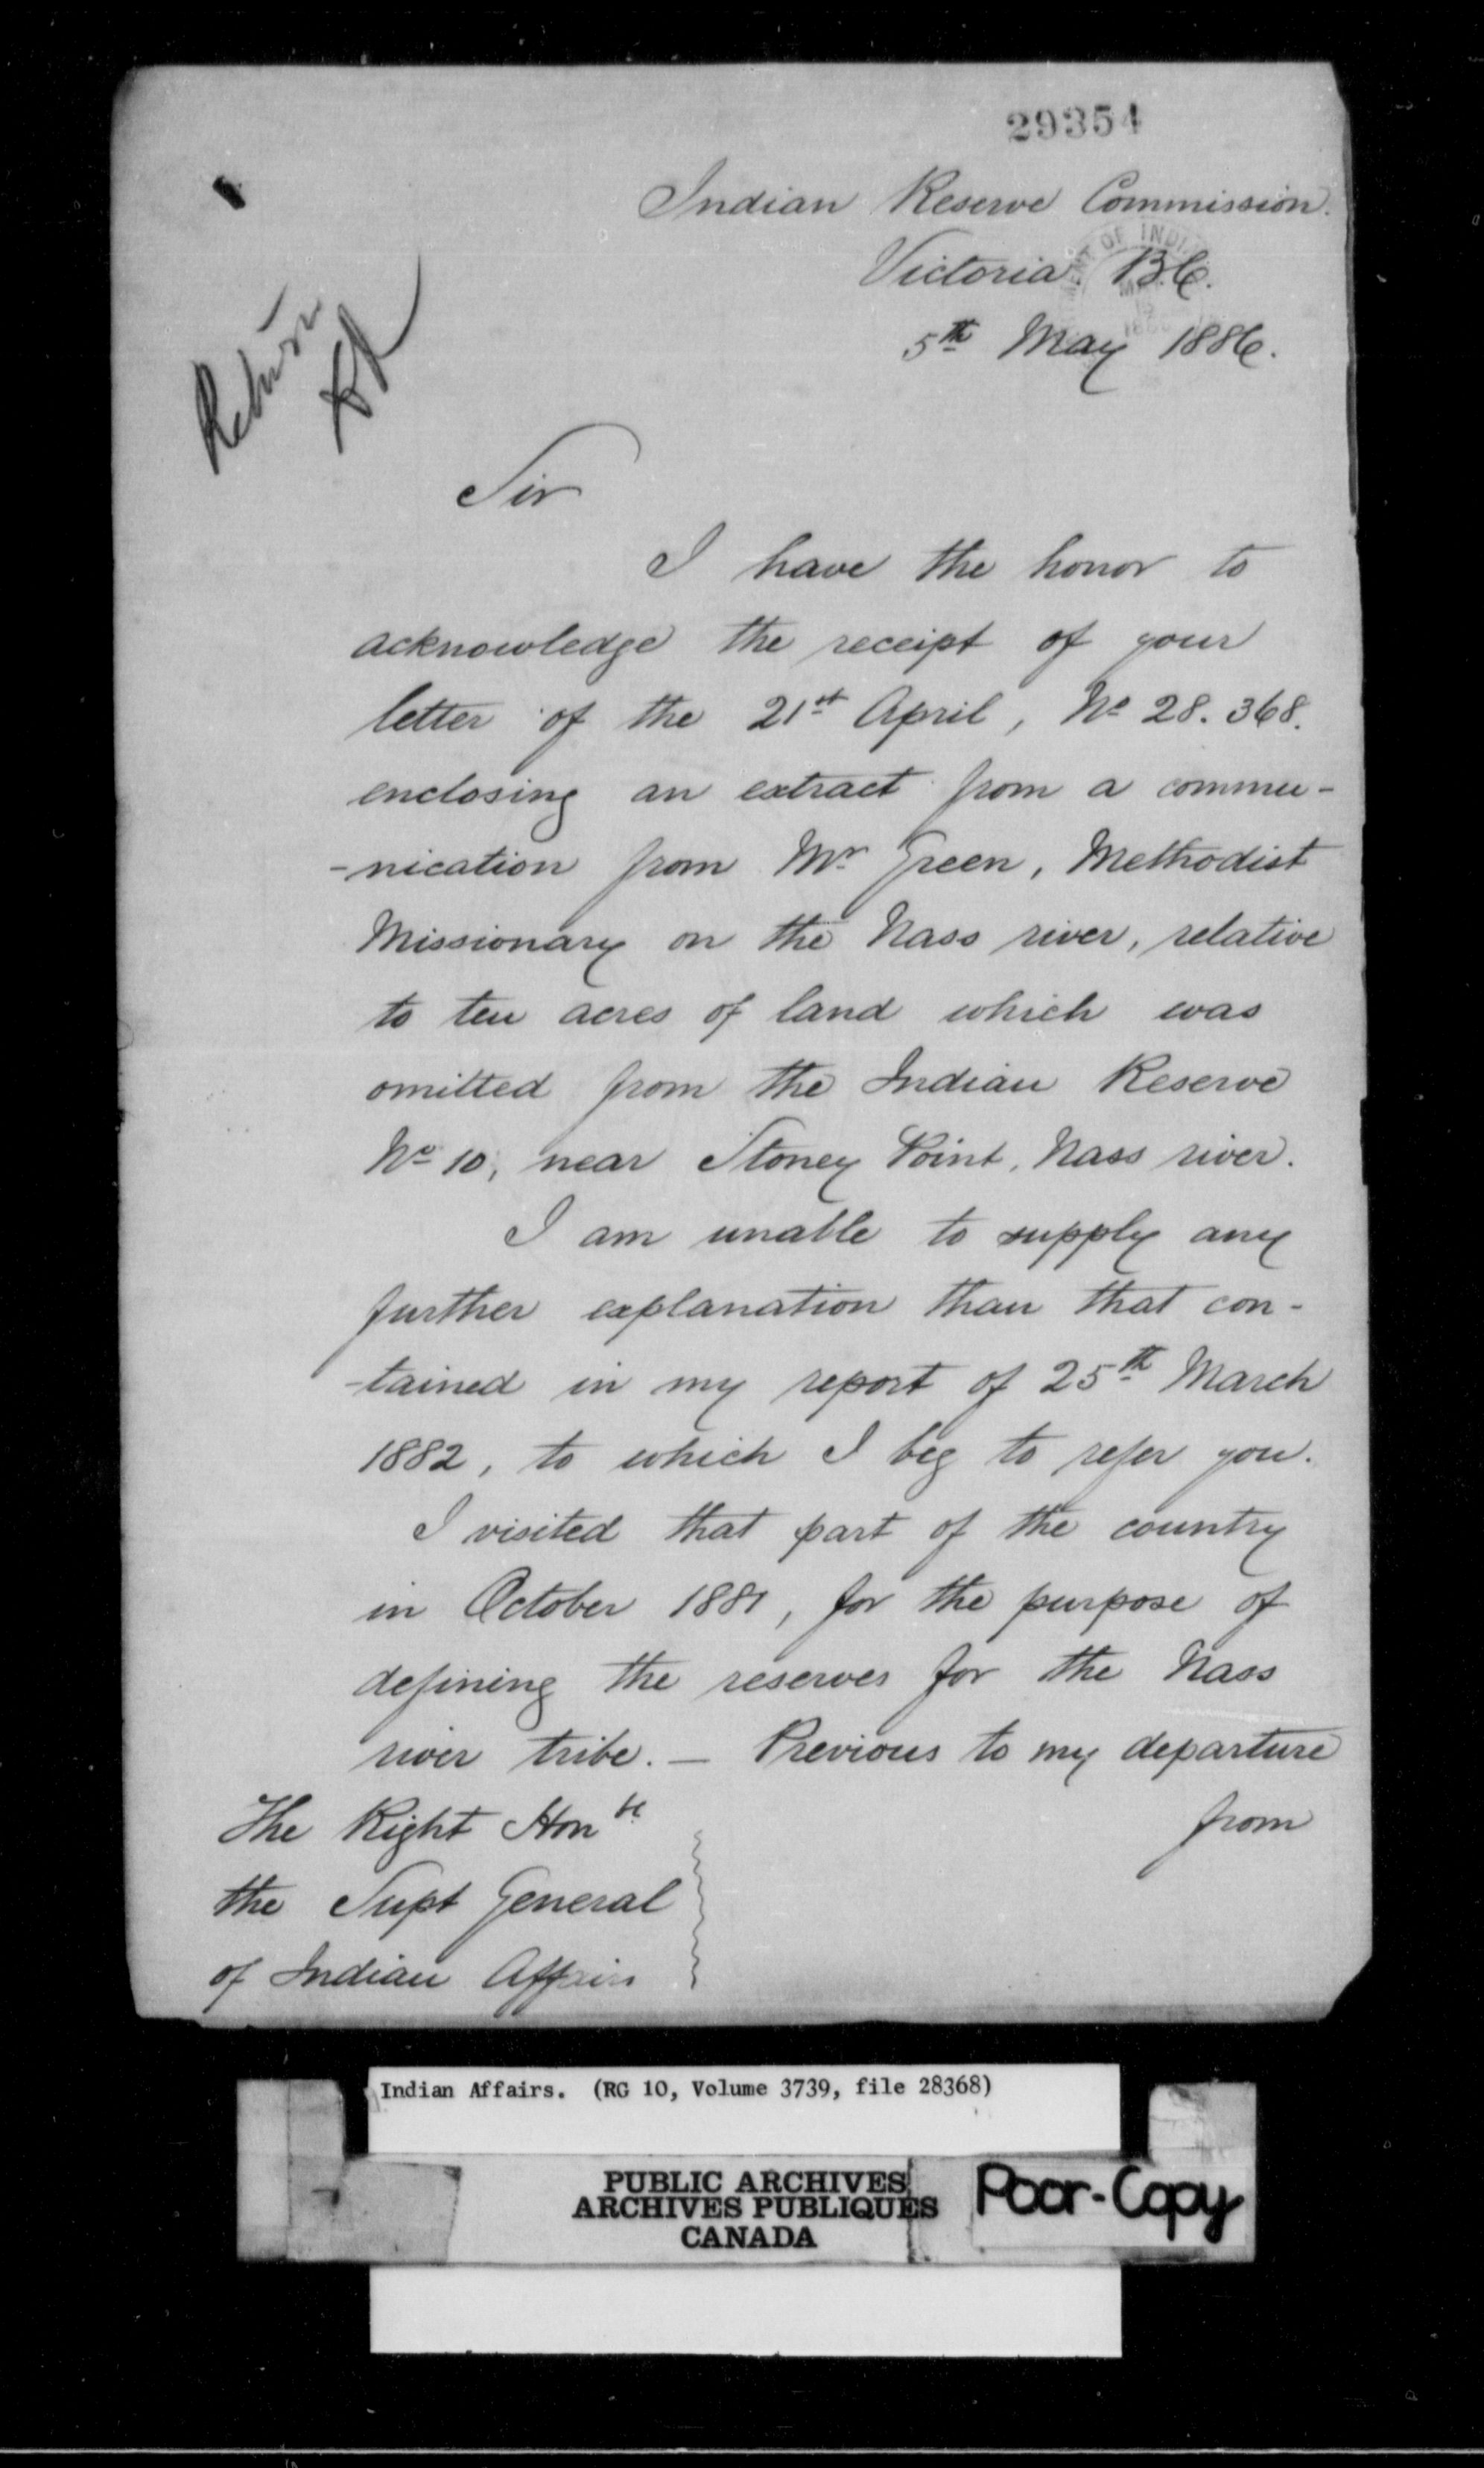 29354
Indian Reserve Commission.
Victoria B.C.
5th May 1886.
Return
Sir
I have the honor to
acknowledge the receipt of your
letter of the 21st April, No 28.368.
enclosing an extract from a commu-
-nication from Mr Green, Methodist
Missionary on the Nass river, relative
to ten acres of land which was
omitted from the Indian Reserve
No 10, near Stoney Point, Nass river.
I am unable to supply any
further explanation than that con-
-tained in my report of 25th March
1882, to which I beg to refer you.
I visited that part of the country
in October 1881, for the purpose of
defining the reserves for the Nass
river tribe. — Previous to my departure
from
The Right Honble
the Supt General
of Indian Affairs
Indian Affairs. (RG 10, Volume 3739, file 28368)
PUBLIC ARCHIVES
ARCHIVES PUBLIQUES
CANADA
Poor-Copy